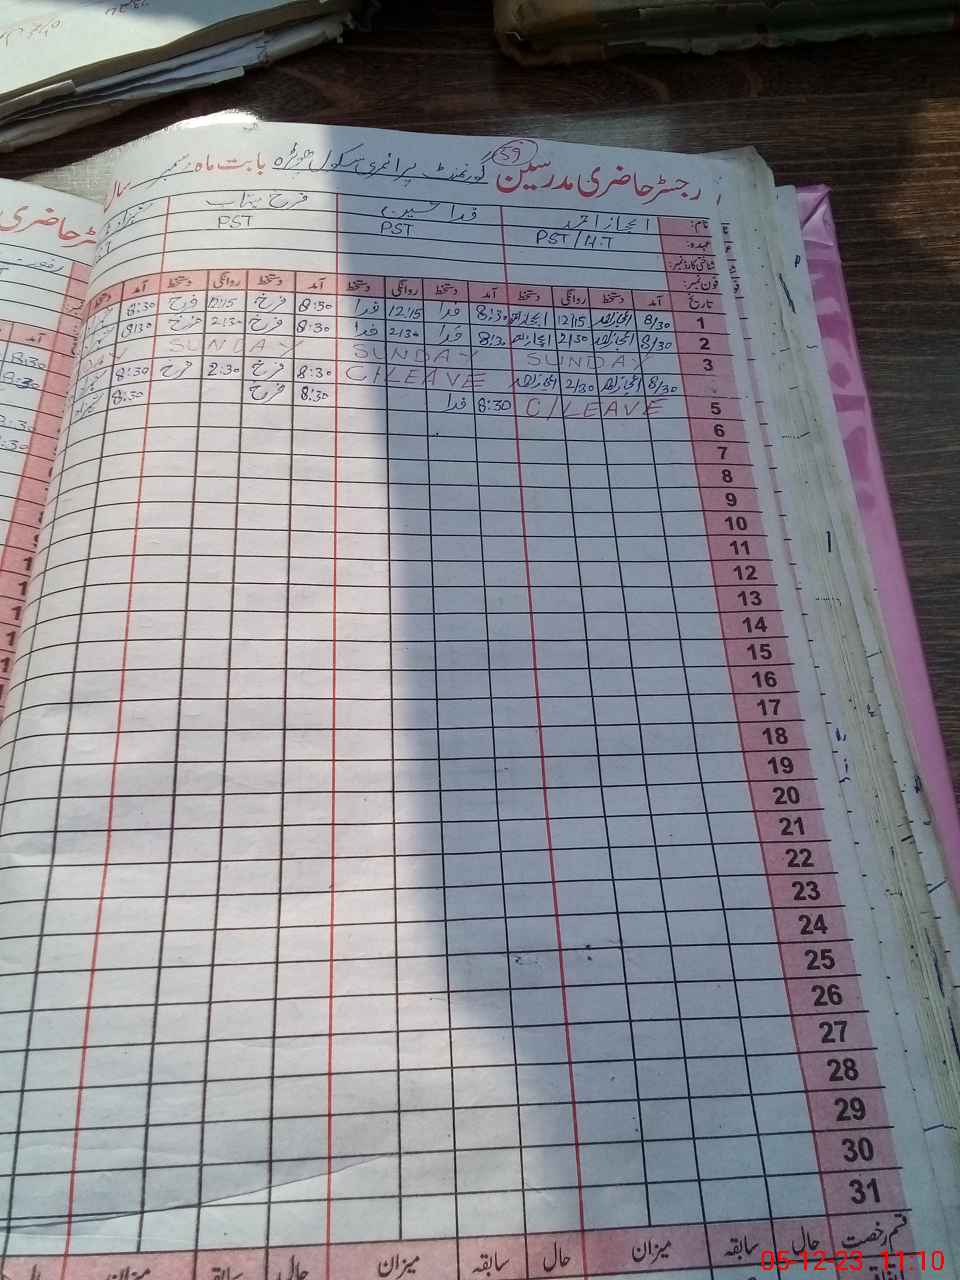 59
رجسٹر حاضری مدرسین گورنمنٹ پرائمری سکول بابت ماہ دسمبر سال
نام: اعجاز احمد فدا حسین فرح
عہدہ: PST/H.T PST PST
شناختی کارڈ نمبر:
فون نمبر:
تاریخ آمد دستخط روانگی دستخط آمد دستخط روانگی دستخط آمد دستخط روانگی دستخط آمد
1 8/30 اعجاز احمد 12/15 اعجاز احمد 8:30 فدا 12/15 فدا 8:30 فرح 12/15 فرح 8:30
2 8/30 اعجاز احمد 2/30 اعجاز احمد 8:30 فدا 2/30 فدا 8:30 فرح 2:30 فرح 8:30
3 SUNDAY SUNDAY SUNDAY
8/30 اعجاز احمد 2/30 اعجاز احمد C/LEAVE 8:30 فرح 2:30 فرح 8:30
5 C/LEAVE 8:30 فدا 8:30 فرح 8:30
6
7
8
9
10
11
12
13
14
15
16
17
18
19
20
21
22
23
24
25
26
27
28
29
30
31
قسم رخصت حال سابقہ میزان حال سابقہ میزان حال سابقہ میزان
05-12-23 11:10